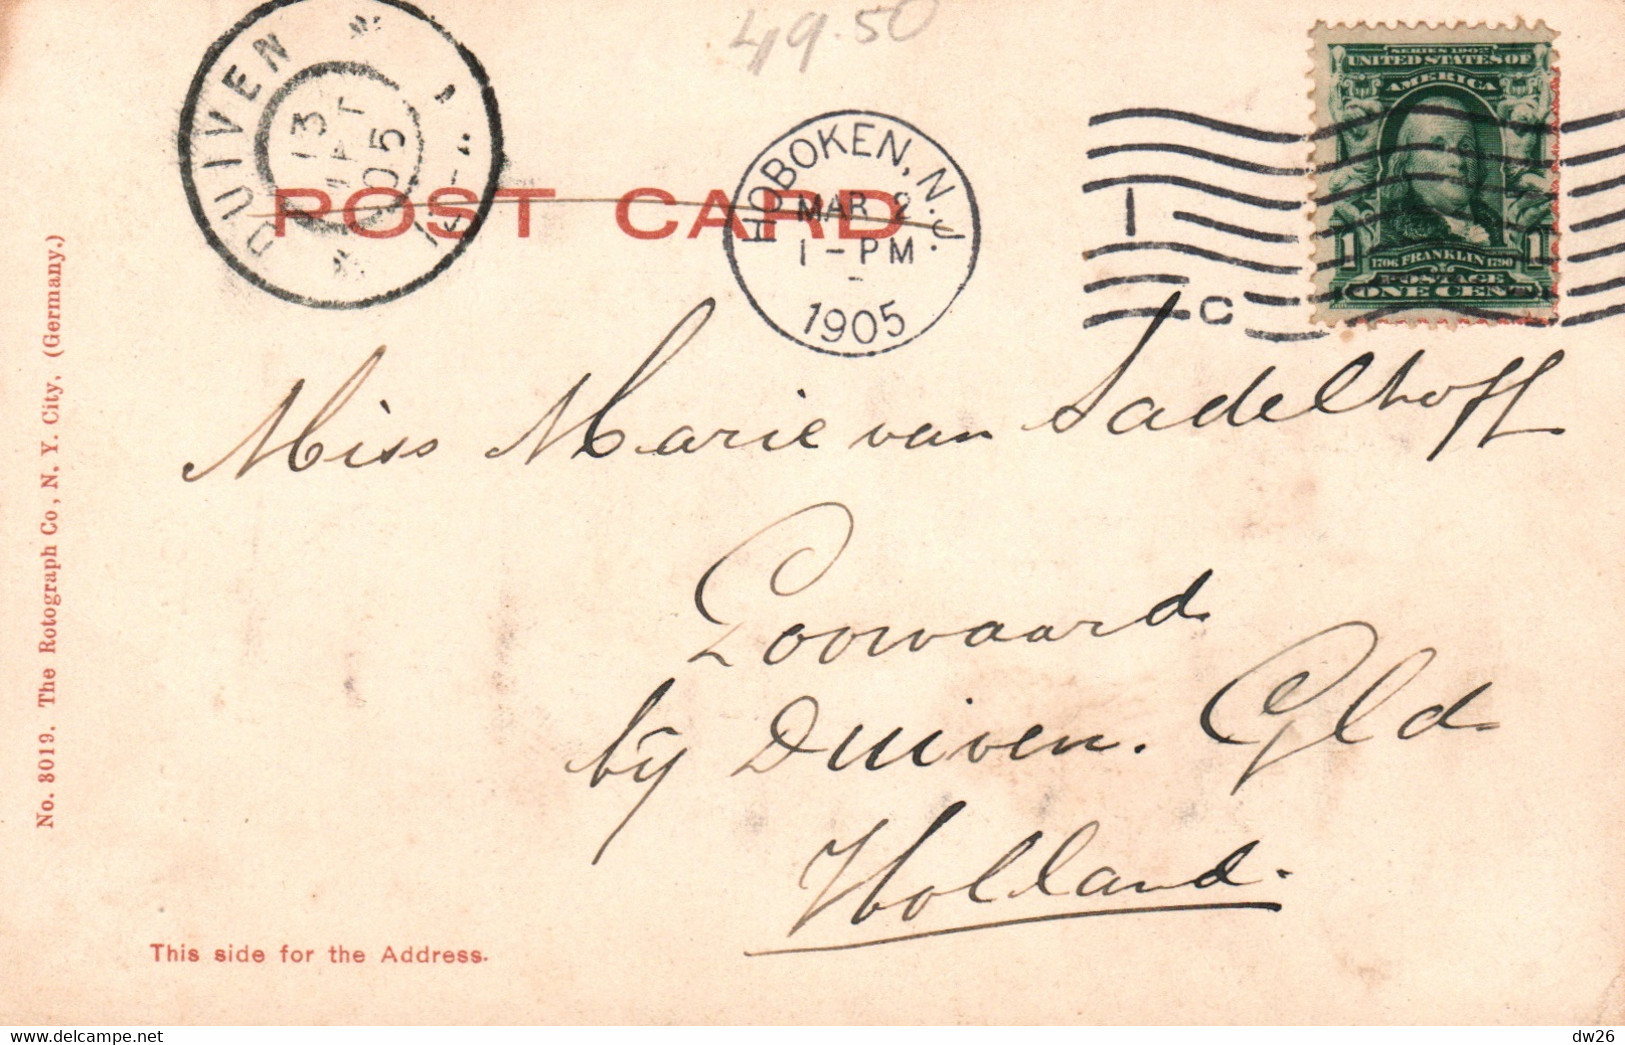 49.50
DUIVEN
13 MRT 05
POST CARD
HOBOKEN, N.J.
MAR 2
1-PM
1905
1
C
SERIES 1902
UNITED STATES OF
AMERICA
1706 FRANKLIN 1790
1 1
POSTAGE
ONE CENT
Miss Marie van Sadelhoff
Loowaard
bij Duiven. Gld
Holland.
This side for the Address.
No. 8019. The Rotograph Co., N. Y. City, (Germany.)
dw26